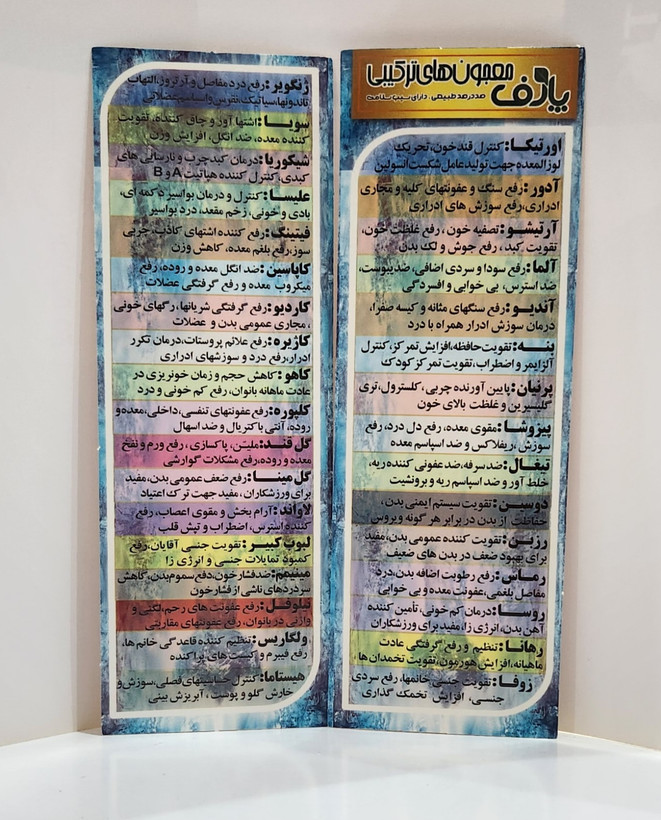 پادف
معجون‌های ترکیبی
صددرصد طبیعی . دارای سیب سلامت
اورتیکا: کنترل قندخون، تحریک
لوزالمعده جهت تولید عامل شکست انسولین
آدور: رفع سنگ و عفونتهای کلیه و مجاری
ادراری، رفع سوزش های ادراری
آرتیشو: تصفیه خون ، رفع غلظت خون،
تقویت کبد ، رفع جوش و لک بدن
آلما: رفع سودا و سردی اضافی، ضدیبوست،
ضد استرس، بی خوابی و افسردگی
آندیو: رفع سنگهای مثانه و کیسه صفرا،
درمان سوزش ادرار همراه با درد
پنـه: تقویت حافظه، افزایش تمرکز، کنترل
آلزایمر و اضطراب، تقویت تمرکز کودک
پرنیان: پایین آورنده چربی، کلسترول، تری
گلیسیرین و غلظت بالای خون
پیزوشا: مقوی معده، رفع دل درد، رفع
سوزش ،ریفلاکس و ضد اسپاسم معده
تیغال: ضدسرفه، ضدعفونی کننده ریه،
خلط آور و ضد اسپاسم ریه و برونشیت
دوسین: تقویت سیستم ایمنی بدن،
حفاظت از بدن در برابر هر گونه ویروس
رزین: تقویت کننده عمومی بدن، مفید
برای بهبود ضعف در بدن های ضعیف
رماس: رفع رطوبت اضافه بدن، درد
مفاصل بلغمی، عفونت معده و بی خوابی
روسا: درمان کم خونی، تأمین کننده
آهن بدن، انرژی زا، مفید برای ورزشکاران
رهانا: تنظیم و رفع گرفتگی عادت
ماهیانه، افزایش هورمون، تقویت تخمدان ها
زوفا: تقویت جنسی خانمها، رفع سردی
جنسی، افزایش تخمک گذاری
ژنگویر: رفع درد مفاصل و آرتروز، التهاب
تاندونها، سیاتیک، نقرس و اسپاسم عضلانی
سویـا: اشتها آور و چاق کننده، تقویت
کننده معده، ضد انگل، افزایش وزن
شیکوریا: درمان کبدچرب و نارسایی های
کبدی، کنترل کننده هپاتیت A و B
علیسا: کنترل و درمان بواسیر دکمه ای،
بادی و خونی، زخم مقعد، درد بواسیر
فیتینگ: رفع کننده اشتهای کاذب، چربی
سوز، رفع بلغم معده، کاهش وزن
کاپاسین: ضد انگل معده و روده، رفع
میکروب معده و رفع گرفتگی عضلات
کاردیو: رفع گرفتگی شریانها، رگهای خونی
، مجاری عمومی بدن و عضلات
کاژیره: رفع علائم پروستات، درمان تکرر
ادرار، رفع درد و سوزشهای ادراری
کاهو: کاهش حجم و زمان خونریزی در
عادت ماهانه بانوان، رفع کم خونی و درد
کلپوره: رفع عفونتهای تنفسی، داخلی، معده و
روده، آنتی باکتریال و ضد اسهال
گل قند: ملین، پاکسازی ، رفع ورم و نفخ
معده و روده، رفع مشکلات گوارشی
گل مینـا: رفع ضعف عمومی بدن، مفید
برای ورزشکاران، مفید جهت ترک اعتیاد
لاواند: آرام بخش و مقوی اعصاب، رفع
کننده استرس، اضطراب و تپش قلب
لبوب کبیر: تقویت جنسی آقایان، رفع
کمبود تمایلات جنسی و انرژی زا
مینیمم: ضدفشار خون، دفع سموم بدن، کاهش
سردردهای ناشی از فشار خون
نیلوفل: رفع عفونت های رحم، لگنی و
واژنی در بانوان، رفع عفونتهای مقاربتی
ولگاریس: تنظیم کننده قاعدگی خانم ها،
رفع فیبرم و کیست های پراکنده
هیستاما: کنترل حساسیتهای فصلی، سوزش و
خارش گلو و پوست ، آبریزش بینی